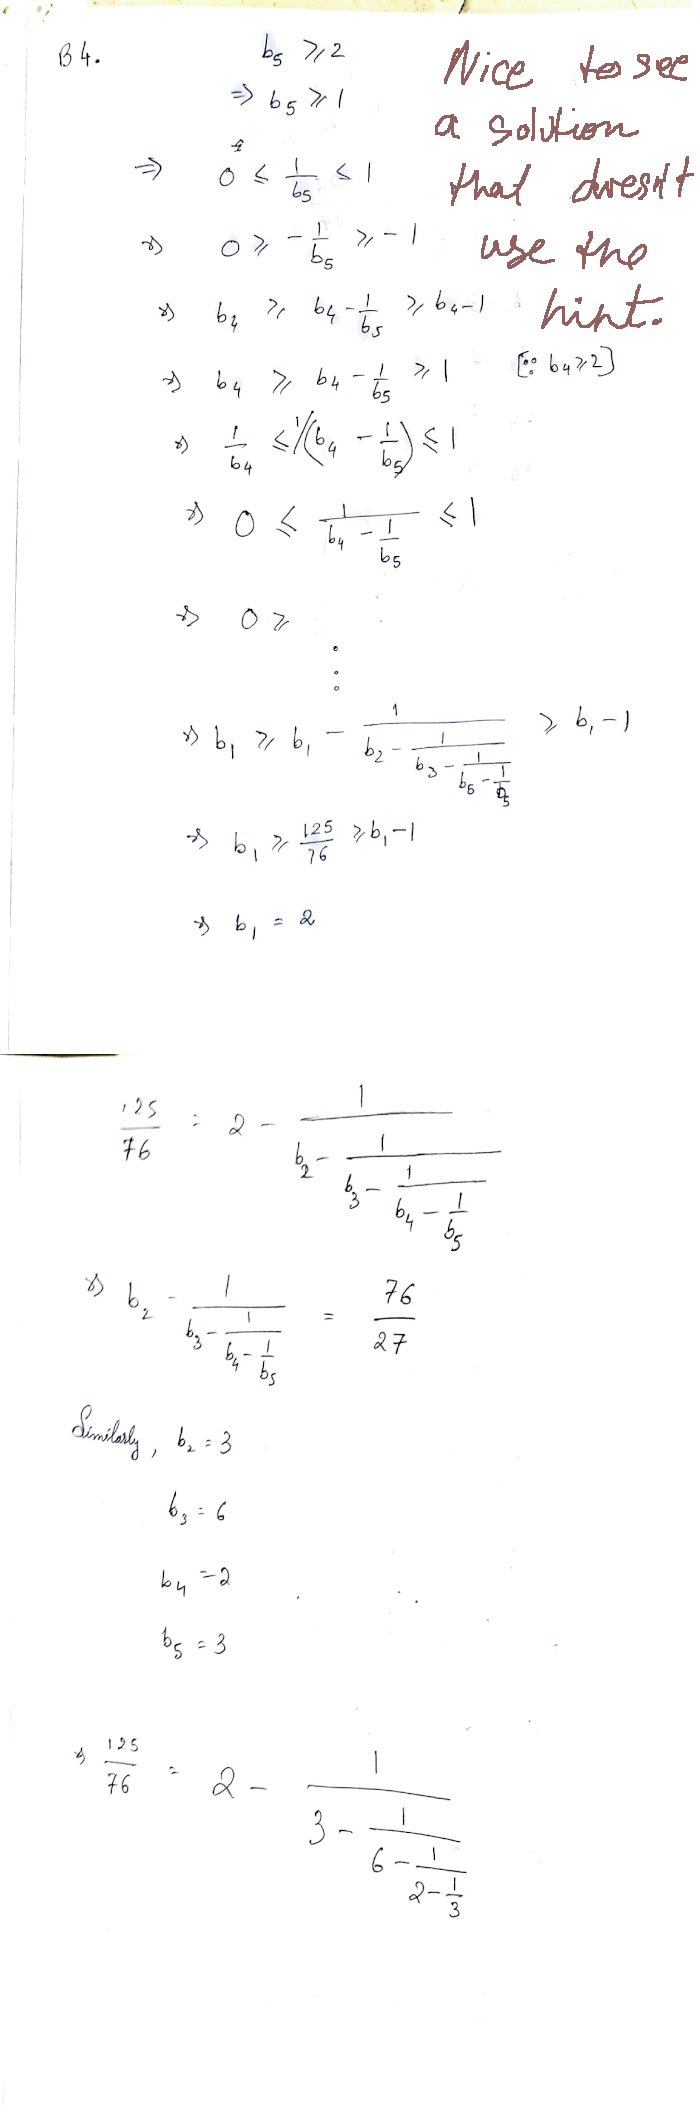 B4. b₅ ⩾ 2
⇒ b₅ ⩾ 1
⇒ 0 ≤ 1/b₅ ≤ 1
⇒ 0 ⩾ -1/b₅ ⩾ -1
⇒ b₄ ⩾ b₄ - 1/b₅ ⩾ b₄-1
⇒ b₄ ⩾ b₄ - 1/b₅ ⩾ 1 [∵ b₄⩾2]
⇒ 1/b₄ ≤ 1/(b₄ - 1/b₅) ≤ 1
⇒ 0 ≤ 1/(b₄ - 1/b₅) ≤ 1
⇒ 0 ⩾
⋮
⇒ b₁ ⩾ b₁ - 1/(b₂ - 1/(b₃ - 1/(b₅ - 1/b₅))) ⩾ b₁-1
⇒ b₁ ⩾ 125/76 ⩾ b₁-1
⇒ b₁ = 2
Nice to see
a solution
that doesn't
use the
hint.
125/76 = 2 - 1/(b₂ - 1/(b₃ - 1/(b₄ - 1/b₅)))
⇒ b₂ - 1/(b₃ - 1/(b₄ - 1/b₅)) = 76/27
Similarly, b₂ = 3
b₃ = 6
b₄ = 2
b₅ = 3
⇒ 125/76 = 2 - 1/(3 - 1/(6 - 1/(2 - 1/3)))